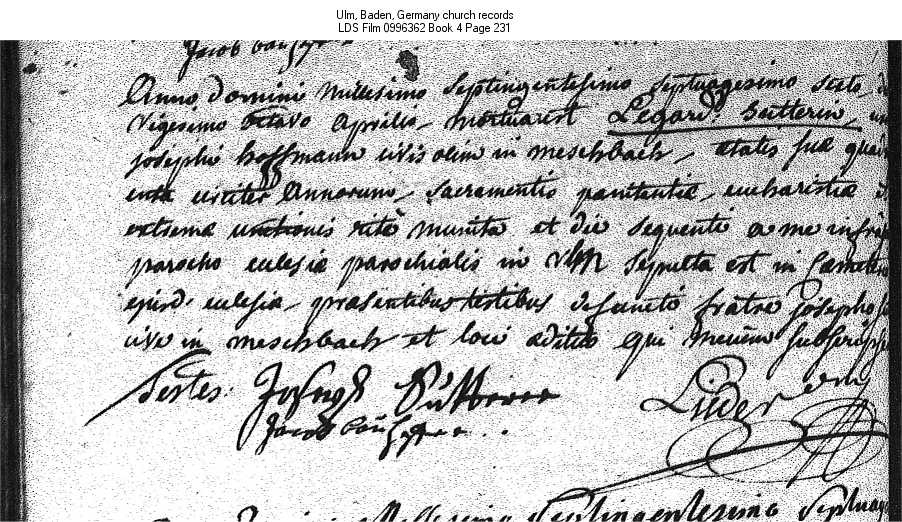 Ulm, Baden, Germany church records
LDS Film 0996362 Book 4 Page 231
Jacob
Anno Domini Millesimo Septingentesimo septuagesimo sexto d
Vigesimo octavo Aprilis mortua est Legard: Sutterin,
josephi hoffmann civis olim in meschbach, etatis suæ quin
circiter Annorum, Sacramentis pænitentiæ, eucharistiæ
extremæ unctionis ritè munita et die sequenti a me infra
parocho eclesiæ parochialis in Ulm sepulta est in Cæmete
ejusd: eclesiæ, præsentibus testibus defunctæ fratre josepho
cive in meschbach et loci ædituo qui mecum subscrips
testes: Joseph Sutterer Lider
Jacob
Millesimo Septingentesimo Septuag